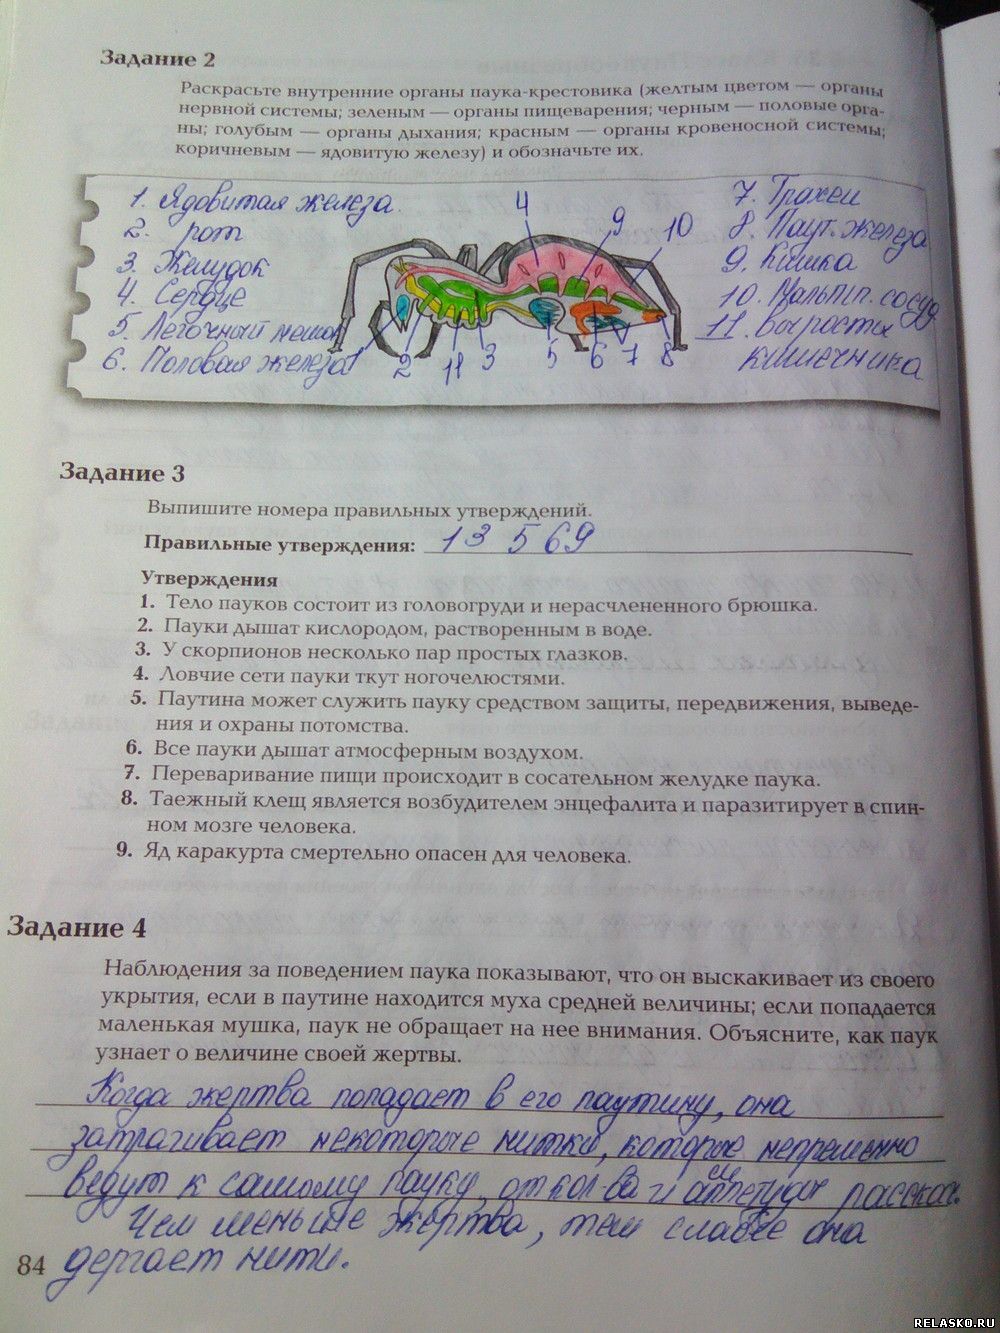 Задание 2
Раскрасьте внутренние органы паука-крестовика (желтым цветом — органы
нервной системы; зеленым — органы пищеварения; черным — половые орга-
ны; голубым — органы дыхания; красным — органы кровеносной системы;
коричневым — ядовитую железу) и обозначьте их.
1. Ядовитая железа
2. рот
3. Желудок
4. Сердце
5. Легочный мешок
6. Половая железа
4
9
10
1
2
11
3
5
6
7
8
7. Трахеи
8. Паут. железа
9. Кишка
10. Мальпиг. сосуд
11. Выросты
кишечника
Задание 3
Выпишите номера правильных утверждений.
Правильные утверждения: 1 3 5 6 9
Утверждения
1. Тело пауков состоит из головогруди и нерасчлененного брюшка.
2. Пауки дышат кислородом, растворенным в воде.
3. У скорпионов несколько пар простых глазков.
4. Ловчие сети пауки ткут ногочелюстями.
5. Паутина может служить пауку средством защиты, передвижения, выведе-
ния и охраны потомства.
6. Все пауки дышат атмосферным воздухом.
7. Переваривание пищи происходит в сосательном желудке паука.
8. Таежный клещ является возбудителем энцефалита и паразитирует в спин-
ном мозге человека.
9. Яд каракурта смертельно опасен для человека.
Задание 4
Наблюдения за поведением паука показывают, что он выскакивает из своего
укрытия, если в паутине находится муха средней величины; если попадается
маленькая мушка, паук не обращает на нее внимания. Объясните, как паук
узнает о величине своей жертвы.
Когда жертва попадает в его паутину, она
затрагивает некоторые нитки, которые непременно
ведут к самому пауку, от кол-ва и
Чем меньше жертва, тем слабее она
дергает нити.
84
RELASKO.RU